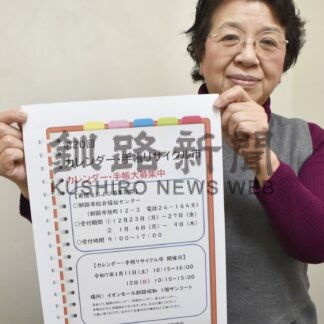 第20回
カレンダー・手帳リサイクル市
カレンダー・手帳大募集中
釧路新聞
KUSHIRO NEWS WEB
釧路市総合福祉センター
(釧路市旭町12-3 電話24-1648)
○受付期間 ①12月23日(月)～27日(金)
② 1月 6日(月)～ 9日(木)
○受付時間 9:00～17:00
【カレンダー・手帳リサイクル市 開催日】
令和7年1月11日(土) 10:15～16:00
12日(日) 10:15～15:00
場所）イオンモール釧路昭和 1階サンコート